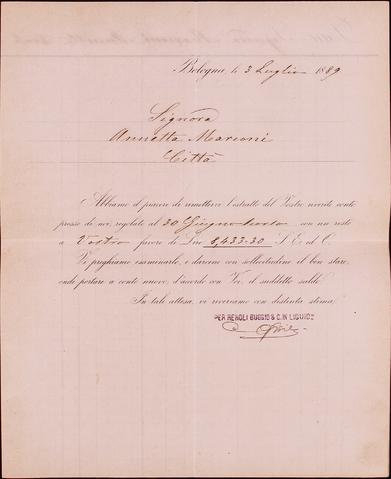 Bologna, li 3 Luglio 1889
Signora
Annetta Marconi
Città
Abbiamo il piacere di rimettervi l'estratto del Vostro riverito conto
presso di noi, regolato al 30 Giugno scorso con un resto
a Vostro favore di Lire 8,433.30 S. E. od O.
Vi preghiamo esaminarlo, e darcene con sollecitudine il ben stare,
onde portare a conto nuovo, d'accordo con Voi, il suddetto saldo.
In tale attesa, vi riveriamo con distinta stima.
PER REnOLI BUGGIO & C. IN LIQUIDE